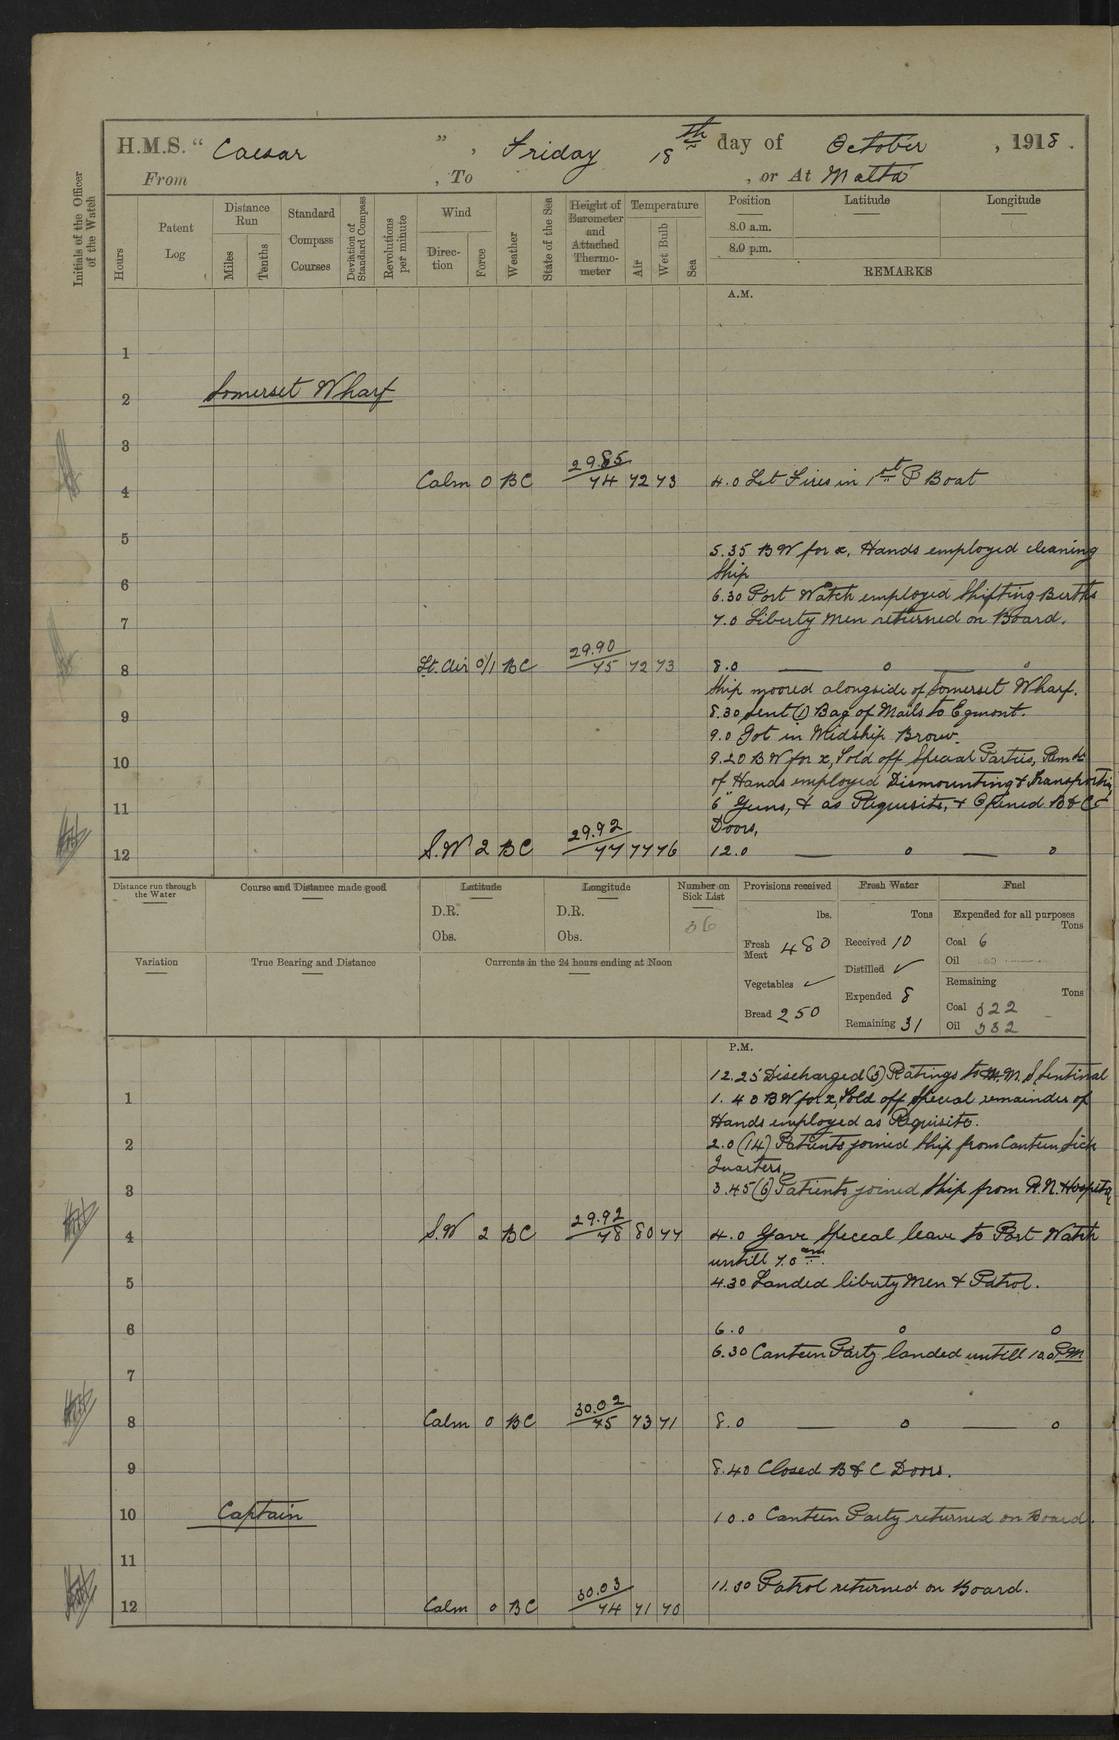 H.M.S. " Caesar " , Friday 18th day of October , 1918 .
From , To , or At Malta
Initials of the Officer of the Watch
Hours
Patent Log
Distance Run
Miles
Tenths
Standard Compass Courses
Deviation of Standard Compass
Revolutions per minute
Wind
Direction
Force
Weather
State of the Sea
Height of Barometer and Attached Thermometer
Temperature
Air
Wet Bulb
Sea
Position
Latitude
Longitude
8.0 a.m.
8.0 p.m.
REMARKS
A.M.
1
2 Somerset Wharf
3
4 Calm 0 BC 29.85 74 72 73 4.0 Lit Fires in 1st P Boat
5
5.35 BW for x. Hands employed cleaning
Ship
6
6.30 Port Watch employed Shifting Berths
7 7.0 Liberty Men returned on Board.
8 Lt. air 0/1 BC 29.90 75 72 73 8.0 — 0 — 0
Ship moored alongside of Somerset Wharf.
9 8.30 Sent (1) Bag of Mails to Egmont.
9.0 Got in Midship Brow.
10 9.20 BW for x, Told off Special Parties, Remdr
of Hands employed Dismounting & Transporting
11 6" Guns, & as Requisite, & Opened B & C
Doors,
12 S.W 2 BC 29.92 77 77 76 12.0 — 0 — 0
Distance run through the Water
Course and Distance made good
Latitude
D.R.
Obs.
Longitude
D.R.
Obs.
Number on Sick List
36
Provisions received
lbs.
Fresh Meat 480
Vegetables ✓
Bread 250
Fresh Water
Tons
Received 10
Distilled ✓
Expended 8
Remaining 31
Fuel
Expended for all purposes
Tons
Coal 6
Oil
Remaining
Tons
Coal 322
Oil 332
Variation
True Bearing and Distance
Currents in the 24 hours ending at Noon
P.M.
12.25 Discharged (3) Ratings to H.M.S. Sentinal
1 1.40 BW for x, Told off Special remainder of
Hands employed as Requisite.
2 2.0 (14) Patients joined Ship from Canteen Sick
Quarters,
3 3.45 (6) Patients joined Ship from R.N. Hospital
4 S.W 2 BC 29.92 78 80 77 4.0 Gave Speceal leave to Port Watch
untill 7.0 am.
5 4.30 Landed liberty Men & Patrol.
6 6.0 0 0
6.30 Canteen Party landed untill 10.0 PM
7
8 Calm 0 BC 30.02 75 73 71 8.0 — 0 — 0
9 8.40 Closed B & C Doors.
10 Captain 10.0 Canteen Party returned on Board.
11
11.30 Patrol returned on Board.
12 Calm 0 BC 30.03 74 71 70